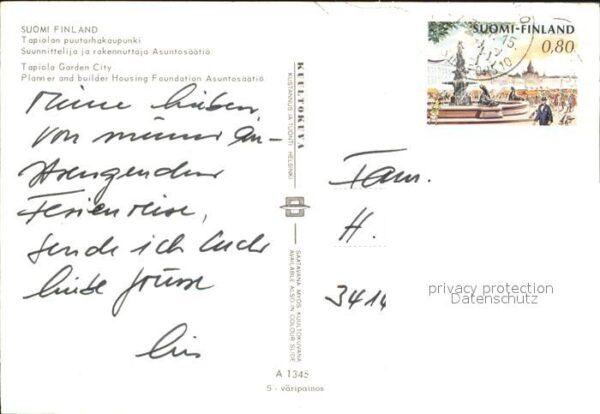 SUOMI FINLAND
Tapiolan puutarhakaupunki
Suunnittelija ja rakennuttaja Asuntosäätiö
Tapiola Garden City
Planner and builder Housing Foundation Asuntosäätiö
Meine Lieben,
von meiner an-
strengenden
Ferienreise,
sende ich Euch
liebe Grüsse
KUULTOKUVA
KUSTANNUS JA TUONTI, HELSINKI
SAATAVANA MYÖS KUULTOKUVANA
AVAILABLE ALSO IN COLOUR SLIDE
A 1345
S - väripainos
SUOMI-FINLAND
0,80
15
10
Fam.
H.
3414
privacy protection
Datenschutz